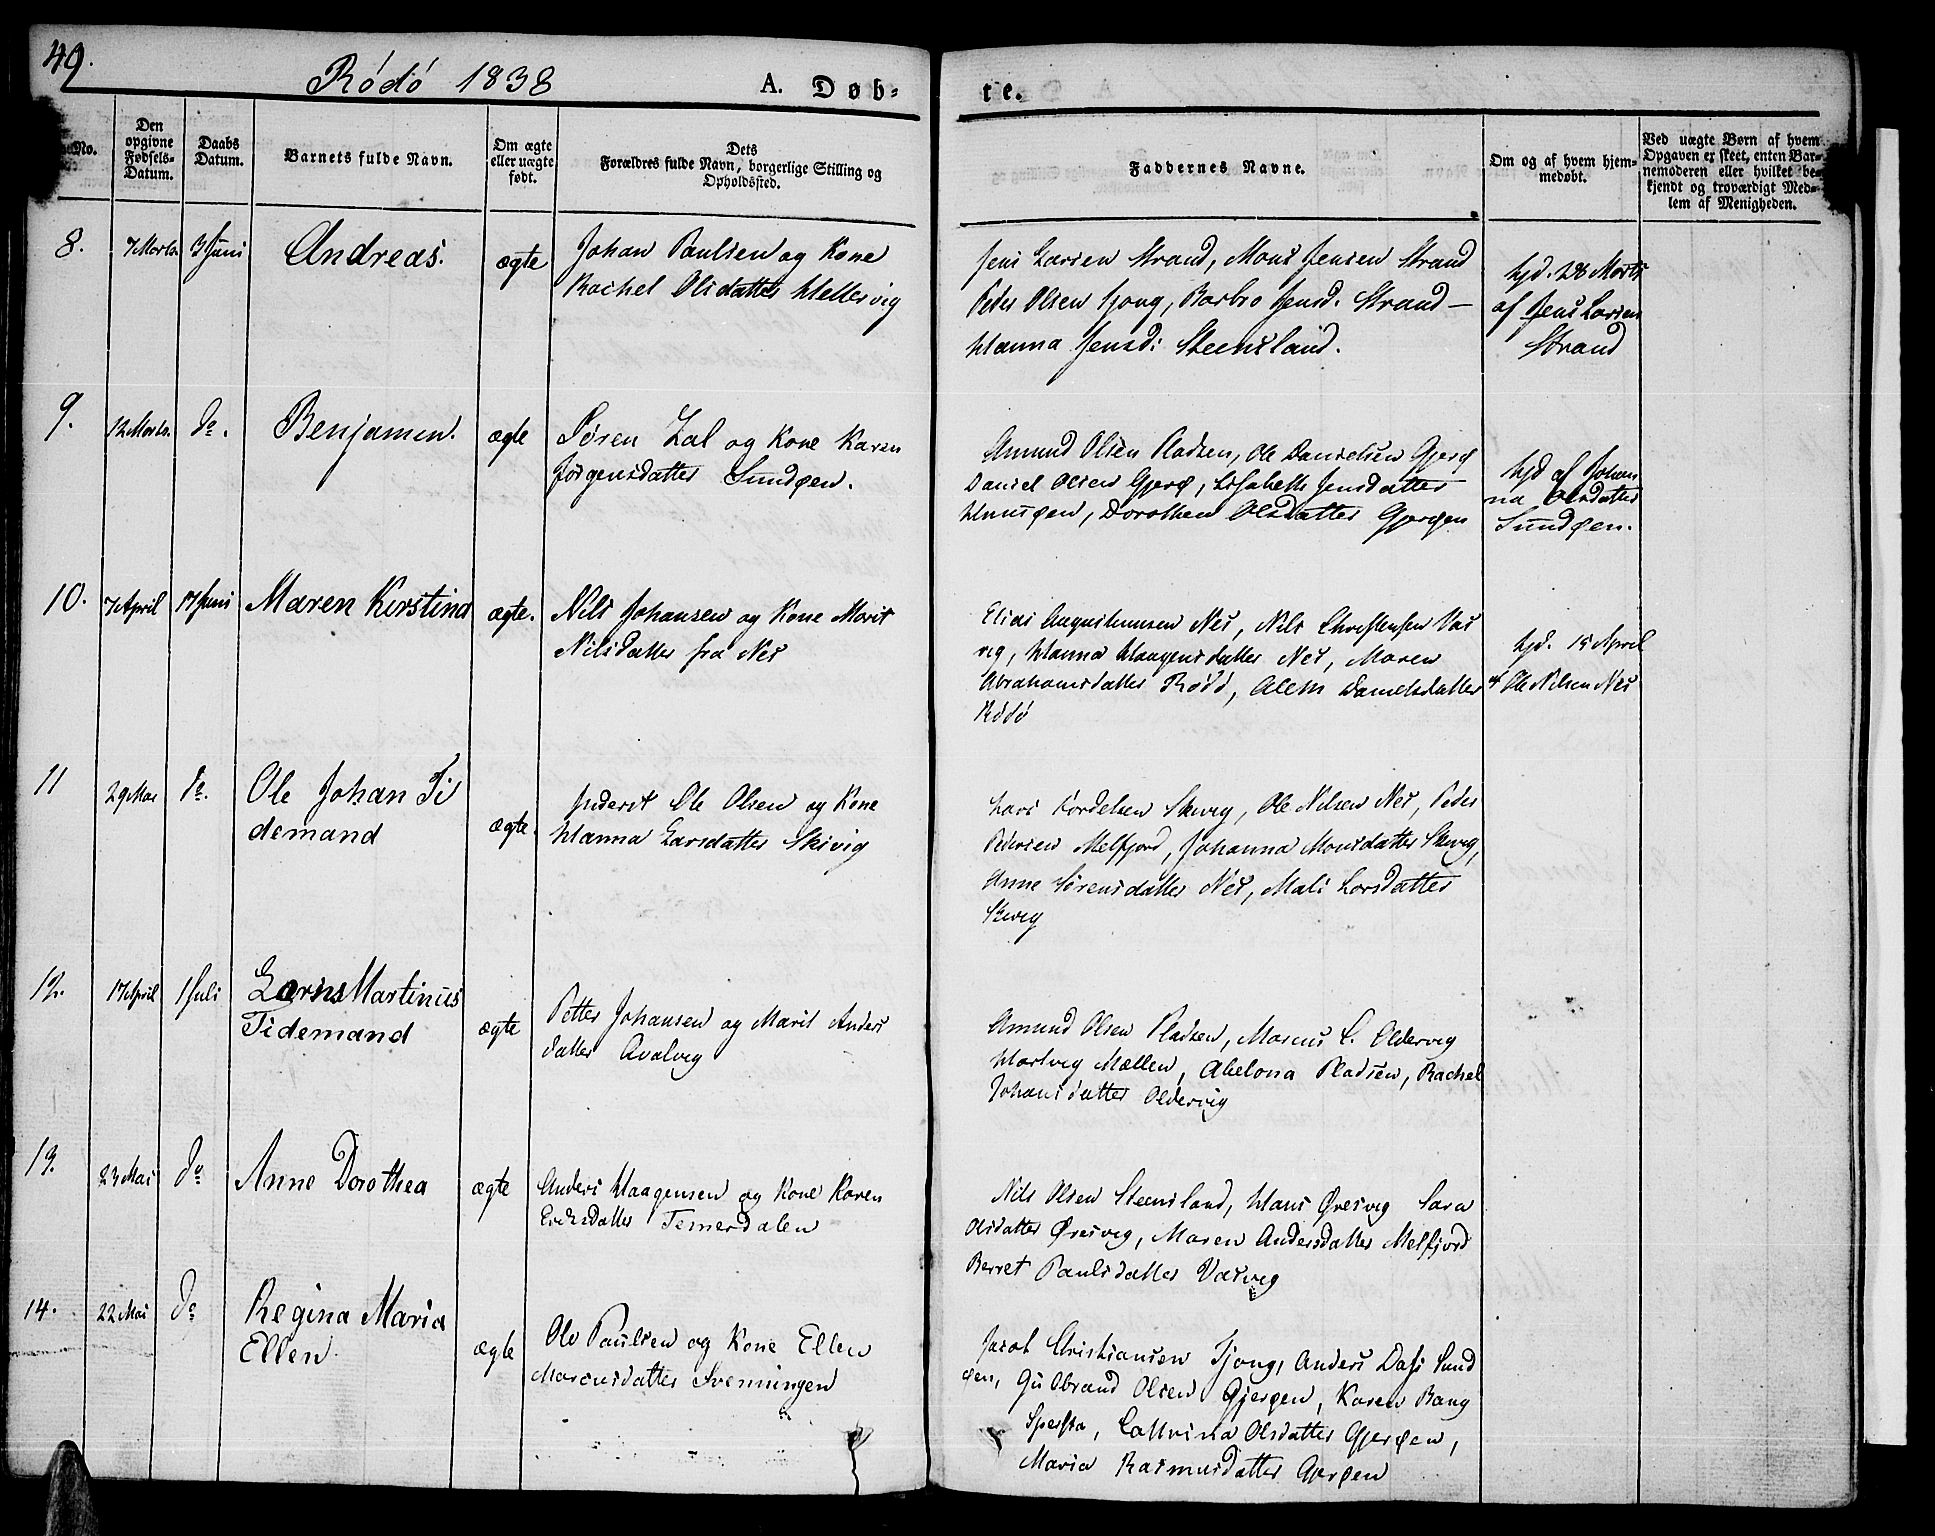 49.
Rödö 1838
A. Døb-
te.
No.
Den
opgivne
Fødsels-
Datum.
Daabs
Datum.
Barnets fulde Navn.
Om ægte
eller uægte
født.
Dets
Forældres fulde Navn, borgerlige Stilling og
Opholdssted.
Faddernes Navne.
Om og af hvem hjem-
medøbt.
Ved uægte Børn af hvem
Opgaven er skeet, enten Bar-
nemoderen eller hvilket be-
kjendt og troværdigt Med-
lem af Menigheden.
8.
7 Morts
3 Juni
Andreas.
ægte
Johan Paulsen og Kone
Rachel Olsdatter Hellervig
Jens Larsen Strand, Mons Jensen Strand
Peder Olsen Tjong, Barbro Jensd. Strand
Hanna Jensd: Steensland.
hjd. 28 Morts
af Jens Larsen
Strand
9.
12 Morts.
do.
Benjamin.
ægte
Sören Zal og Kone Karen
Jörgensdatter Sundøen.
Amund Olsen Pladsen, Ole Danielsen Gjerø
Daniel Olsen Gjerø, Lisabeth Jensdatter
Huusøen, Dorothea Olsdatter Gjerøen
hjd af Johan
na Olsdatter
Sundøen.
10.
7 April
17 Juni
Maren Kirstina
ægte.
Nils Johansen og Kone Marit
Nilsdatter fra Nes
Elias Augustinusen Nes, Nils Christensen Vas
vig, Hanna Haagensdatter Nes, Maren
Abrahamsdatter Rödö, Danielsdatter
Rödö
hjd. 15 April
af Ole Nilsen Nes
11
29 Mai
do.
Ole Johan Ti
demand
ægte.
Inderst Ole Olsen og Kone
Hanna Larsdatter Skivig
Lars Tordelsen Skivig, Ole Nilsen Nes, Peder
Pedersen Melfjord, Johanna Monsdatter Skivig,
Anne Sörensdatter Nes, Mali Larsdatter
Skivig
12.
17 April
1 Juli
Martinus
Tidemand
ægte
Petter Johansen og Marit Anders
datter Avalvig
Amund Olsen Pladsen, Marcus C. Oldervig
Hartvig Mællen, Abelona Pladsen, Rachel
Johansdatter Oldervig
13.
23 Mai
do
Anne Dorothea
ægte
Anders Haagensen og Kone Karen
Ericksdatter Temerdalen
Nils Olsen Steensland, Hans Øresvig Sara
Olsdatter Øresvig, Maren Andersdatter Melfjord
Berret Paulsdatter Vasvig
14.
22 Mai
do
Regina Maria
Ellen
ægte
Ole Paulsen og Kone Ellen
Marcusdatter Svenningen
Jacob Christiansen Tjong, Anders Dass Sund
øen, Gulbrand Olsen Gjerøen, Karen Bang
Cathrina Olsdatter Gjerøen,
Maria Rasmusdatter Gjerøen